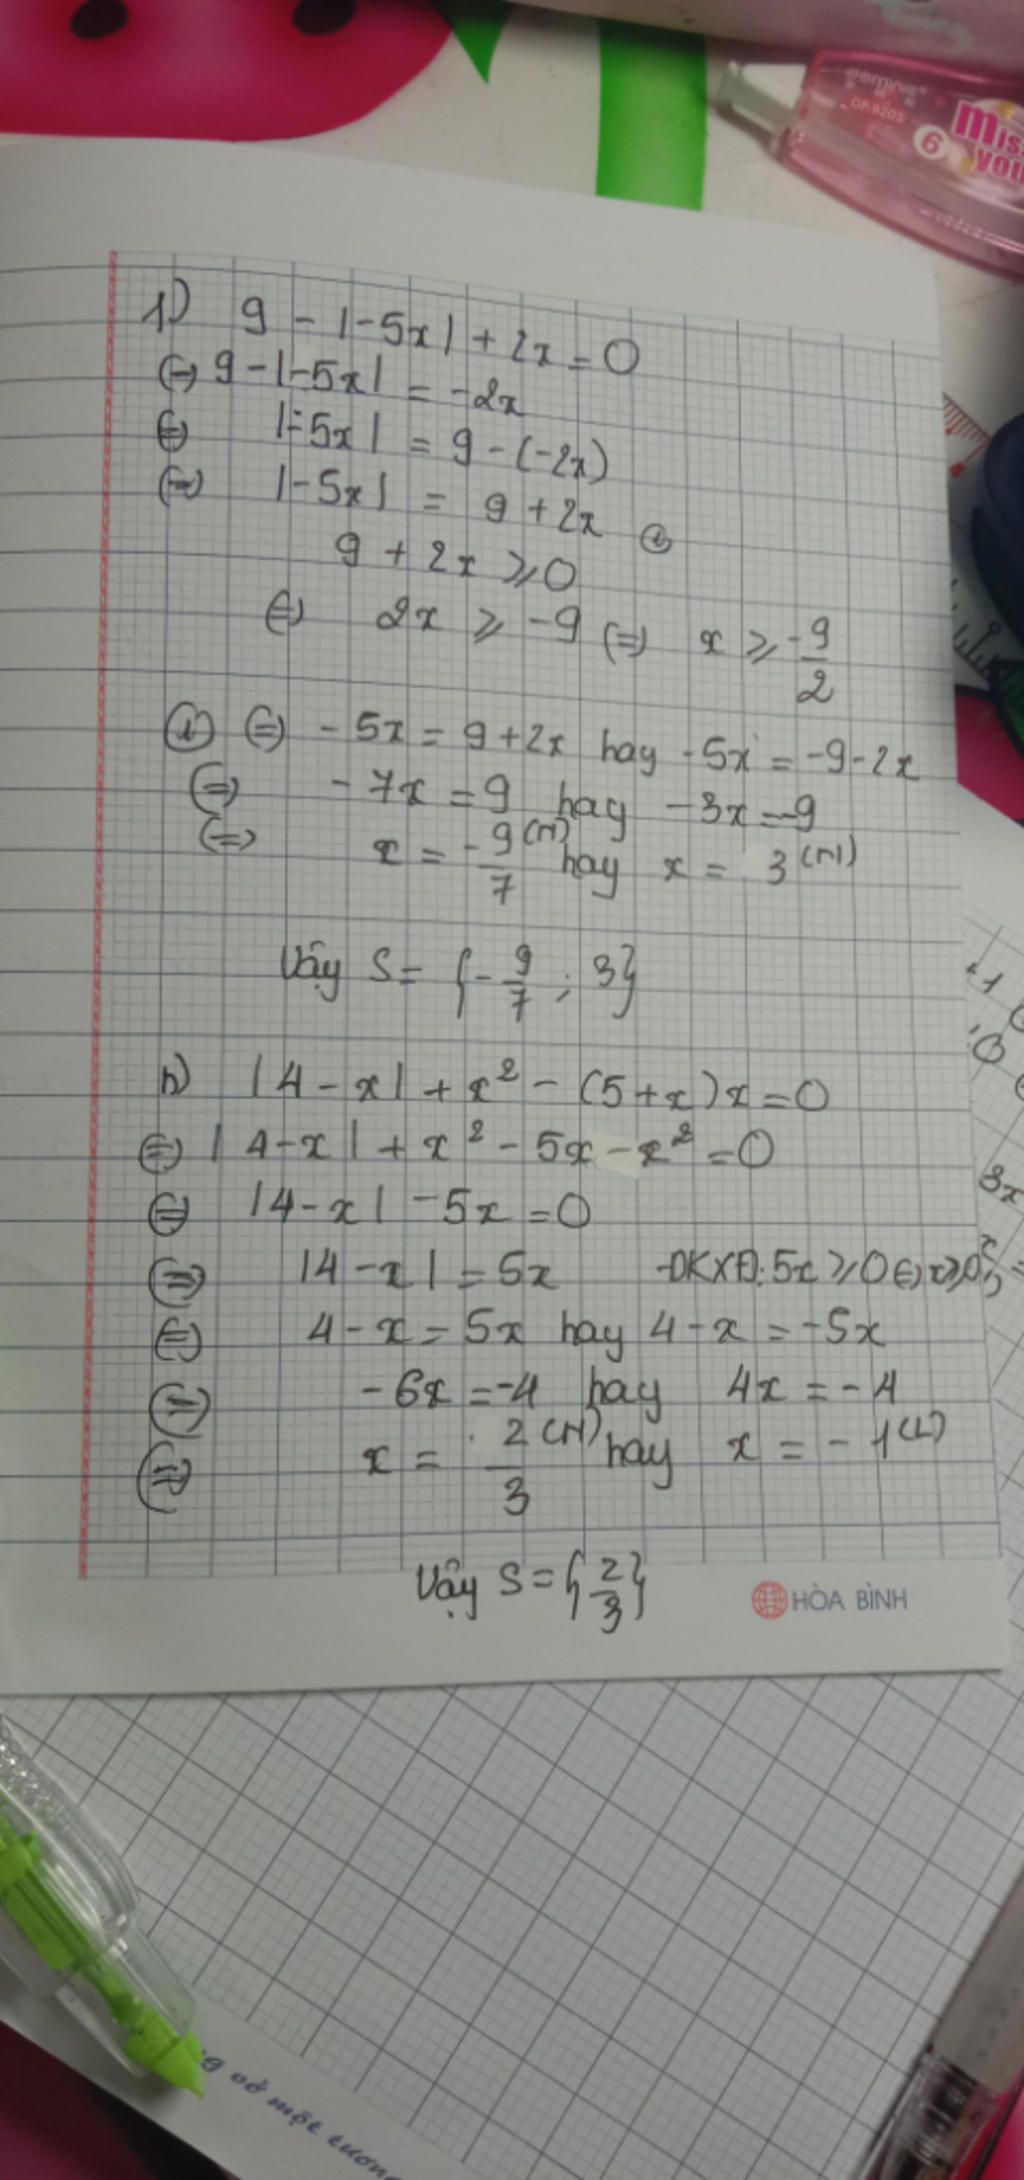 eomnie®
DP-8203
6
Miss
you
1) 9 - |-5x| + 2x = 0
(=) 9 - |-5x| = -2x
(=) |-5x| = 9 - (-2x)
(=) |-5x| = 9 + 2x
9 + 2x ⩾ 0
(=) 2x ⩾ -9 (=) x ⩾ -9/2
(=) -5x = 9 + 2x hay -5x = -9 - 2x
(=) -7x = 9 hay -3x = -9
(=) x = -9/7 (N) hay x = 3 (N)
Vậy S = {-9/7 ; 3}
n) |4 - x| + x² - (5 + x)x = 0
(=) |4 - x| + x² - 5x - x² = 0
(=) |4 - x| - 5x = 0
(=) |4 - x| = 5x ĐKXĐ: 5x ⩾ 0 (=) x ⩾ 0
(=) 4 - x = 5x hay 4 - x = -5x
(=) -6x = -4 hay 4x = -4
(=) x = 2/3 (N) hay x = -1 (L)
Vậy S = {2/3}
HÒA BÌNH
8x
vở một tương